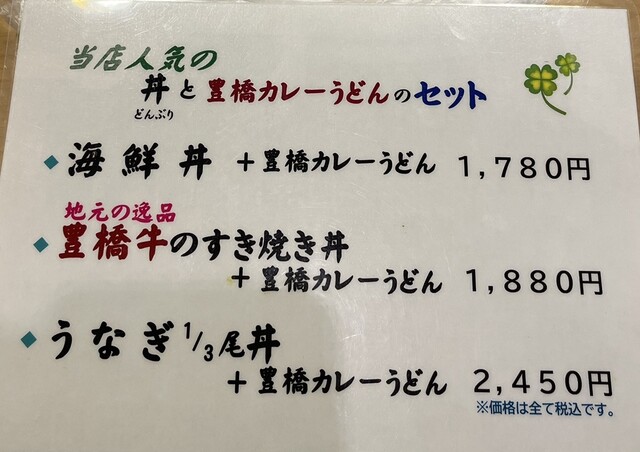 当店人気の
丼と豊橋カレーうどんのセット
どんぶり
◆海鮮丼 +豊橋カレーうどん 1,780円
地元の逸品
◆豊橋牛のすき焼き丼
+豊橋カレーうどん 1,880円
◆うなぎ1/3尾丼
+豊橋カレーうどん 2,450円
※価格は全て税込です。